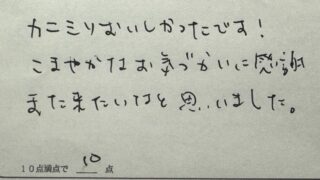 カニミソおいしかったです!
こまやかなお気づかいに感謝
また来たいなと思いました。
10点満点で 10 点